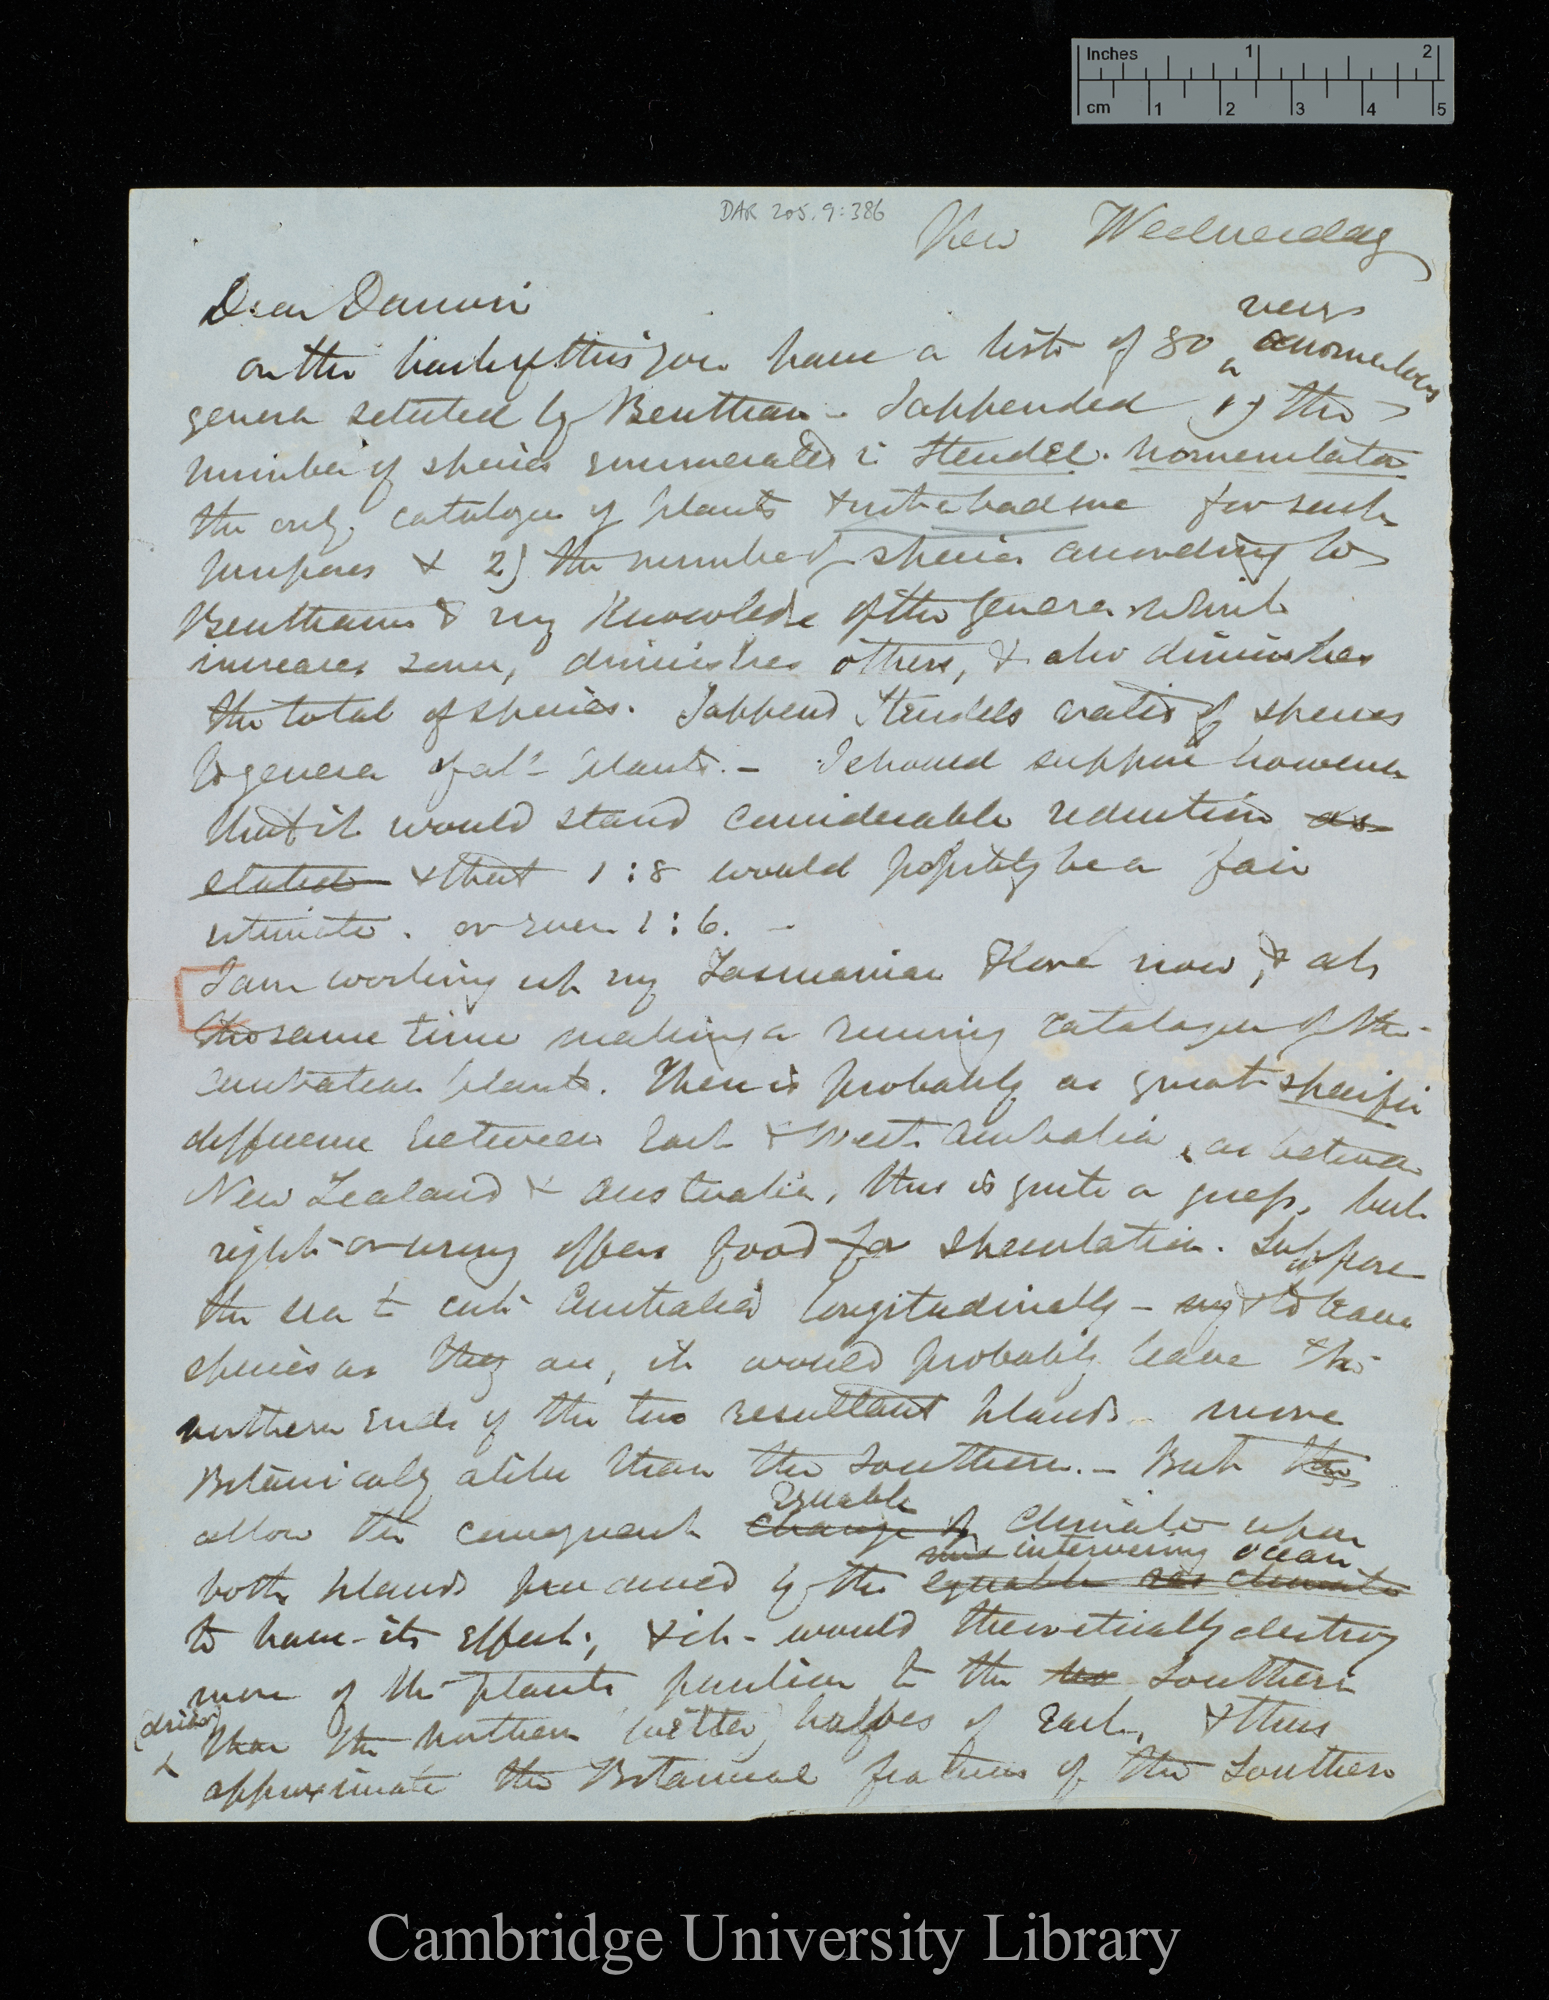 Inches 1 2
cm 1 2 3 4 5
DAR 205.9:386
Kew Wednesday
Dear Darwin
On the back of this you have a list of 80 very anomalous
genera selected by Bentham — I appended 1) the
number of species enumerated in Steudel. nomenclator
the only catalogue of plants & not a bad one for such
purposes & 2) the number of species according to
Bentham's & my knowledge of the genera. which
increases some, diminishes others, & also diminishes
the total of species. I append Steudels ratio of species
to genera of all plants. — I should suppose however
that it would stand considerable reduction as
stated & that 1:8 would possibly be a fair
estimate. or even 1:6. —
I am working up my Tasmanian Flora now, & at
the same time making a running catalogue of the
Australian plants. There is probably as great specific
difference between East & West Australia, as between
New Zealand & Australia, this is quite a guess, but
right or wrong offers food for speculation. Suppose
the sea to cut Australia longitudinally — & to leave
species as they are, it would probably leave the
northern ends of the two resultant Islands more
Botanically alike than the Southern. — But
allow the consequent change of Equable Climate upon
both Islands produced by the equable climate intervening ocean
to have its effect; & it would theoretically destroy
more of the plants peculiar to the Southern
(drier) than the northern (wetter) halves of Each, & thus
approximate the Botanical features of the Southern
Cambridge University Library